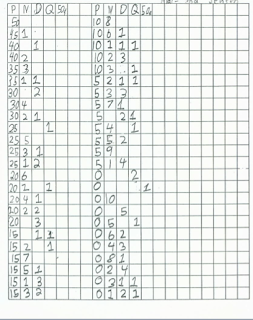 P N D Q 50¢ P N D Q 50¢
50 10 8
45 1 10 6 1
40 1 10 1 1 1
40 2 10 2 3
35 3 10 3 1
35 1 1 5 2 1 1
30 2 5 3 3
30 4 5 7 1
30 2 1 5 2 1
25 1 5 4 1
25 5 5 5 2
25 3 1 5 9
25 1 2 5 1 4
20 6 0 2
20 2 1 0 1
20 4 1 0 10
20 2 2 0 5
20 3 0 5 1
15 1 1 0 6 2
15 2 1 0 4 3
15 7 0 8 1
15 5 1 0 2 4
15 1 3 0 3 1 1
15 3 2 0 1 2 1